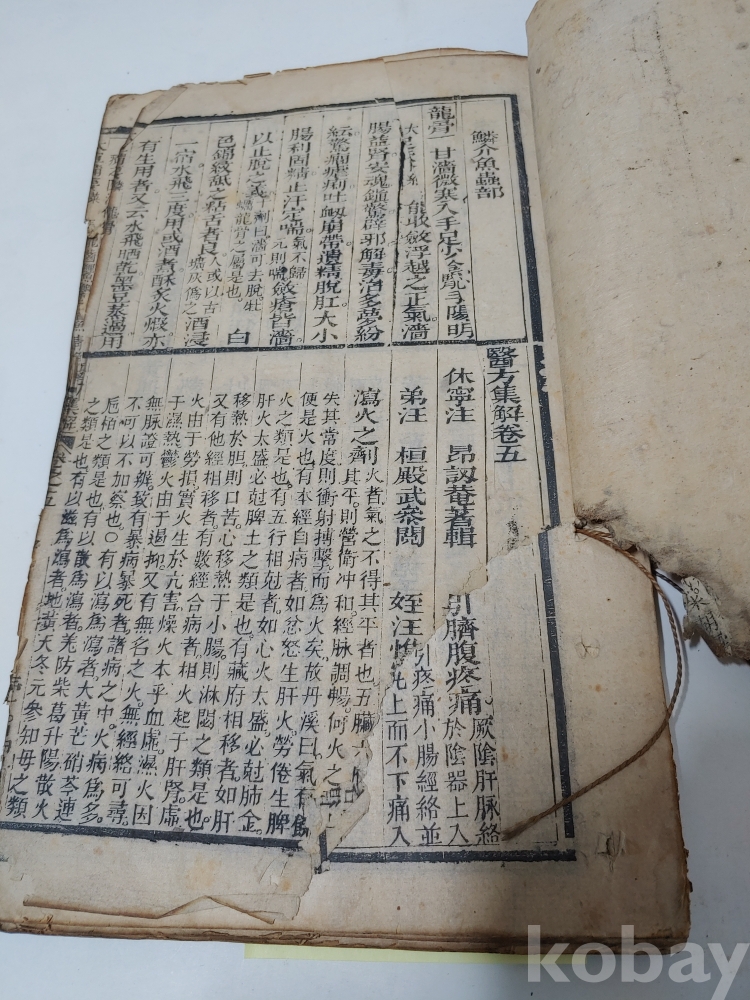 鱗介魚蟲部
龍骨 甘濇微寒入手足少陰腎手陽明
能收斂浮越之正氣濇
腸益腎安魂鎮驚辟邪解毒治多夢紛
紜驚癇瘧痢吐衄崩帶遺精脫肛大小
腸利固精止汗定喘氣不歸元則喘斂瘡皆濇
以止脫之義 劑曰濇可去脫牡蠣龍骨之屬是也 白
色錦紋舐之粘舌者良人或以古壙灰僞之酒浸
一宿水飛三度用或酒煮酥炙火煅亦
有生用者又云水飛晒乾黑豆蒸過用
醫方集解卷五
休寧汪 昂訒菴著輯
弟汪 桓殿武參閱 姪汪惟
引臍腹疼痛。厥陰肝脉絡於陰器上入
引疼痛小腸經絡並
上而不下痛入
瀉火之劑 火者氣之不得其平者也五臟六
其平。則營衛冲和經脉調暢。何火之
失其常度則衝射搏擊而爲火矣。故丹溪曰氣有餘
便是火也有本經自病者如忿怒生肝火。勞倦生脾
火之類是也有五行相尅者如心火太盛。必尅肺金。
肝火太盛必尅脾土之類是也。有藏府相移者如肝
移熱於胆則口苦心移熱于小腸則淋閟之類是也。
又有他經相移者。有數經合病者相火起于肝腎。虛
火由于勞損。實火生於亢害燥火本乎血虛濕火因
于濕熱鬱火由于遏抑又有無名之火。無經絡可尋
無脉證可辨致有暴病暴死者。諸病之中。火病爲多。
不可以不加察也〇有以瀉爲瀉者大黃芒硝芩連
梔柏之類是也有以散爲瀉者羌防柴葛升陽散火
之類是也有以滋爲瀉者地黃天冬元參知母之類